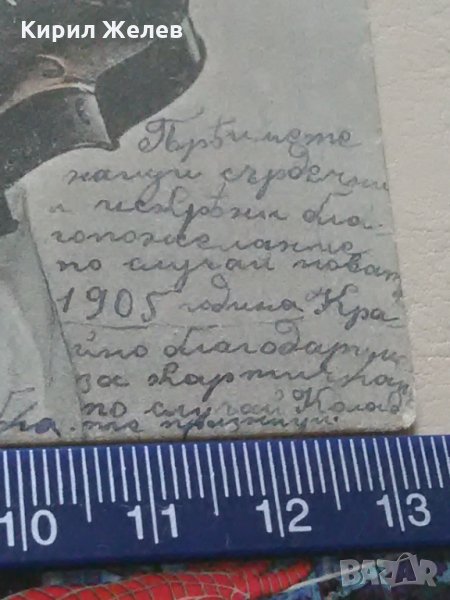 Кирил Желев
Прѣимете
нашуи сърдечни
и искрѣни бла-
гопожелание
по случаи новата
1905 година Кра-
йно благодарни
за картичката
по случай Колед
ные празници.
10 11 12 13
BAZAR